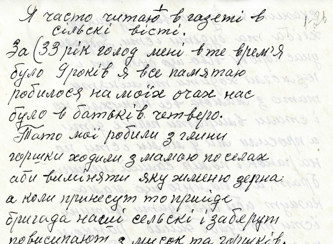 Я часто читаю в газеті в
сільскі вісті.
За (33 рік голод мені в те врем'я
було 9 років Я все памятаю
робилося на моїх очах нас
було в батьків четверо.
Тато мої робили з глини
горшки ходили з мамою по селах
аби виміняти яку жменю зерна
а коли принесут то прийде
бригада нашії сельскі і заберут
повисипают з мисок та горшків.